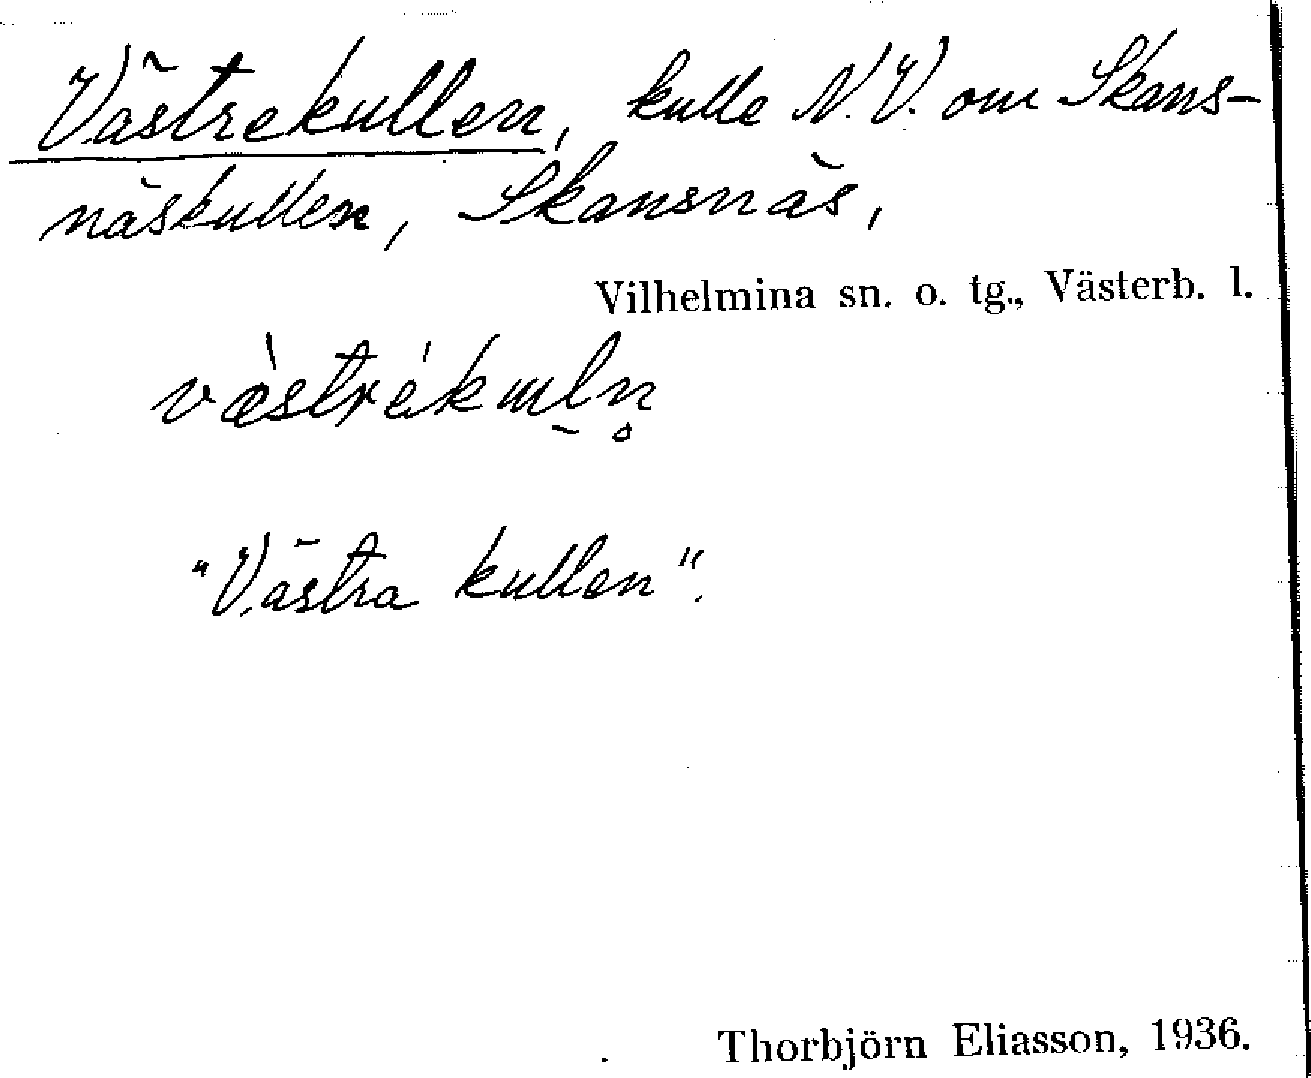 Västrekullen, kulle N.V. om Skans-
näskullen, Skansnäs,
Vilhelmina sn. o. tg., Västerb. l.
"Västra kullen".
Thorbjörn Eliasson, 1936.